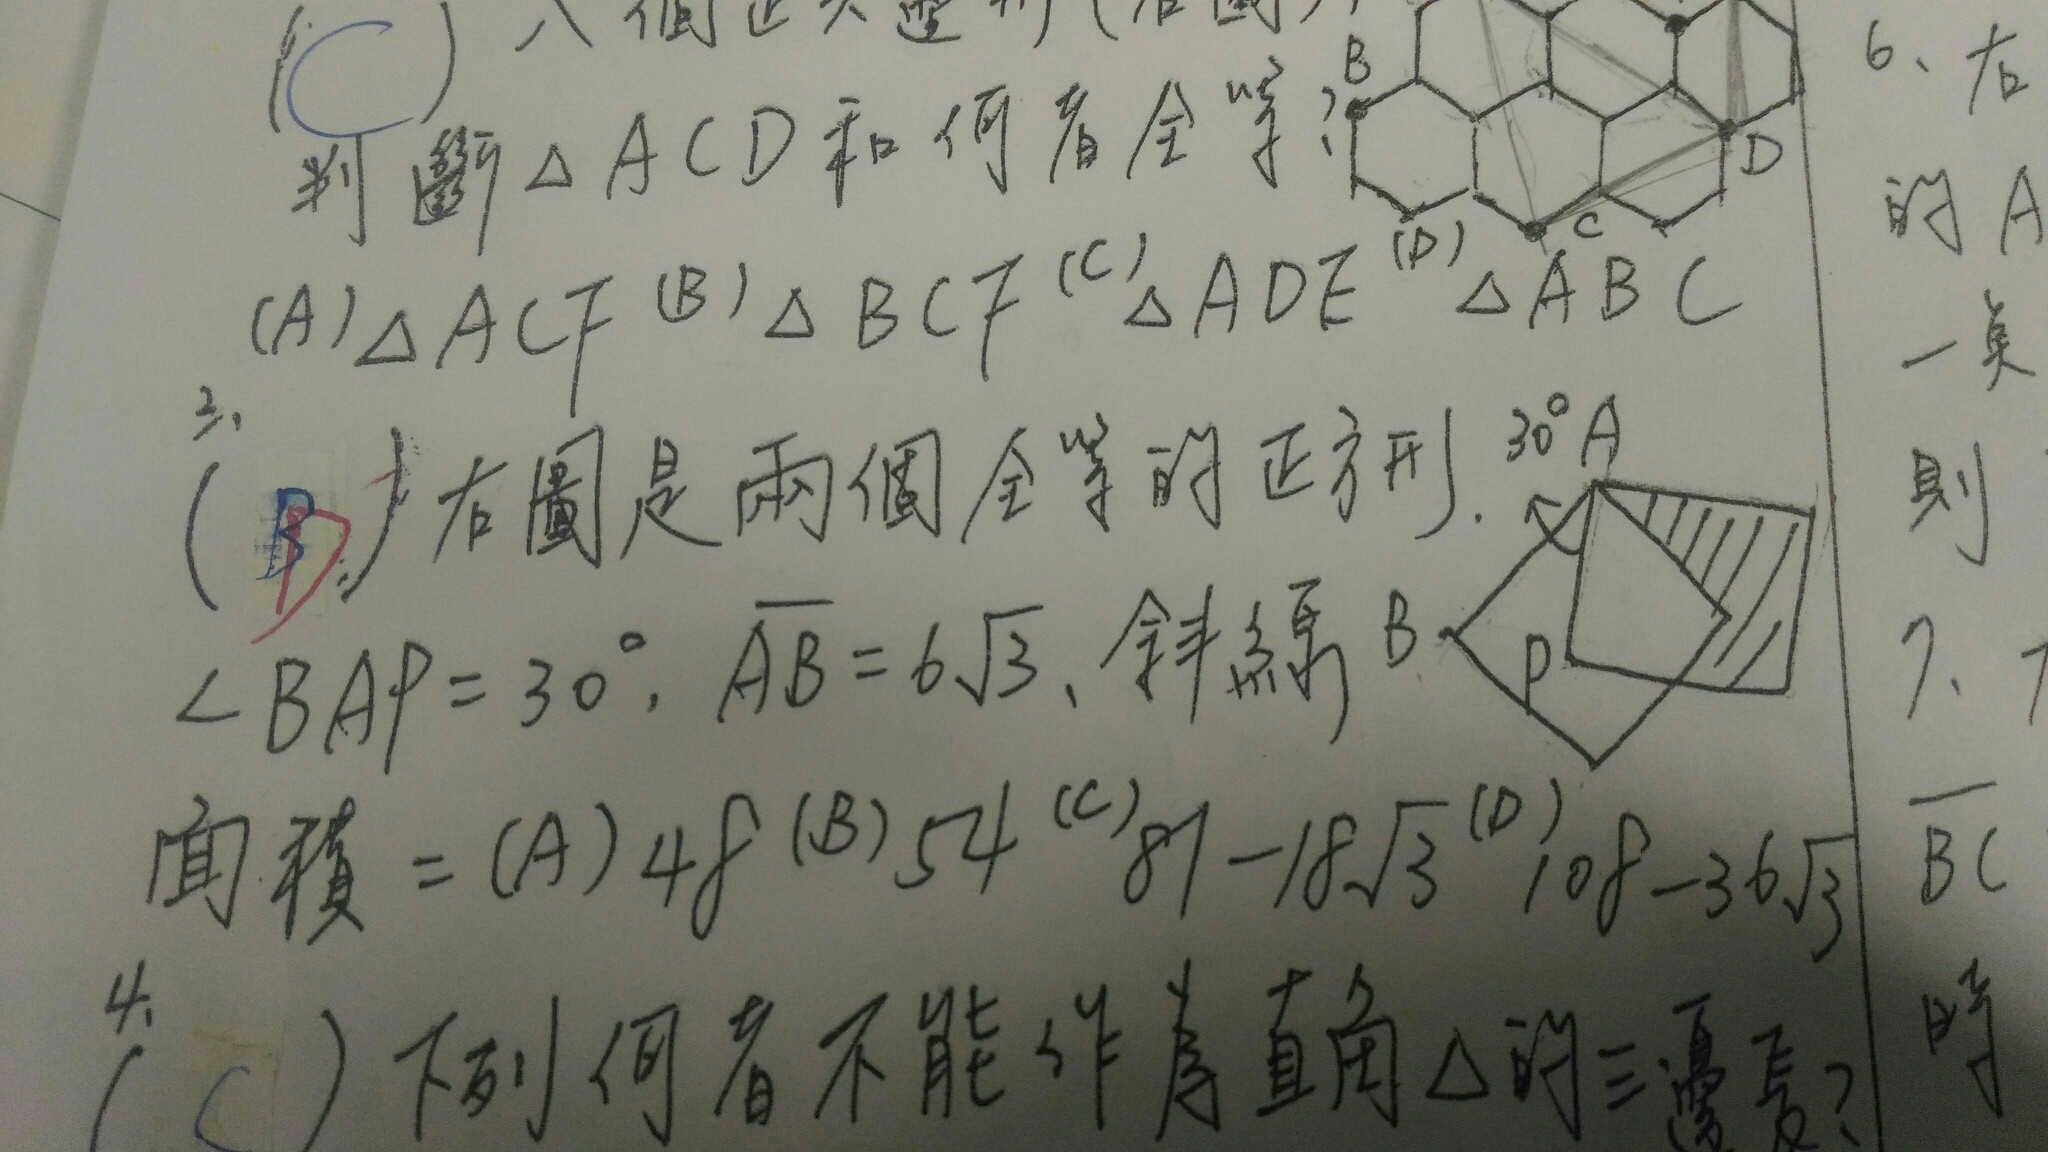 (C) 八個正六邊形(右圖),
判斷△ACD和何者全等?
(A)△ACF (B)△BCF (C)△ADE (D)△ABC
B
D
C
3.
(B D) 右圖是兩個全等的正方形.
∠BAP=30°. AB=6√3、斜線
面積=(A)48 (B)54 (C)81-18√3 (D)108-36√3
30° A
B
P
4.
(C) 下列何者不能作為直角△的三邊長?
6、右
的A
一點
則
7、
BC
時